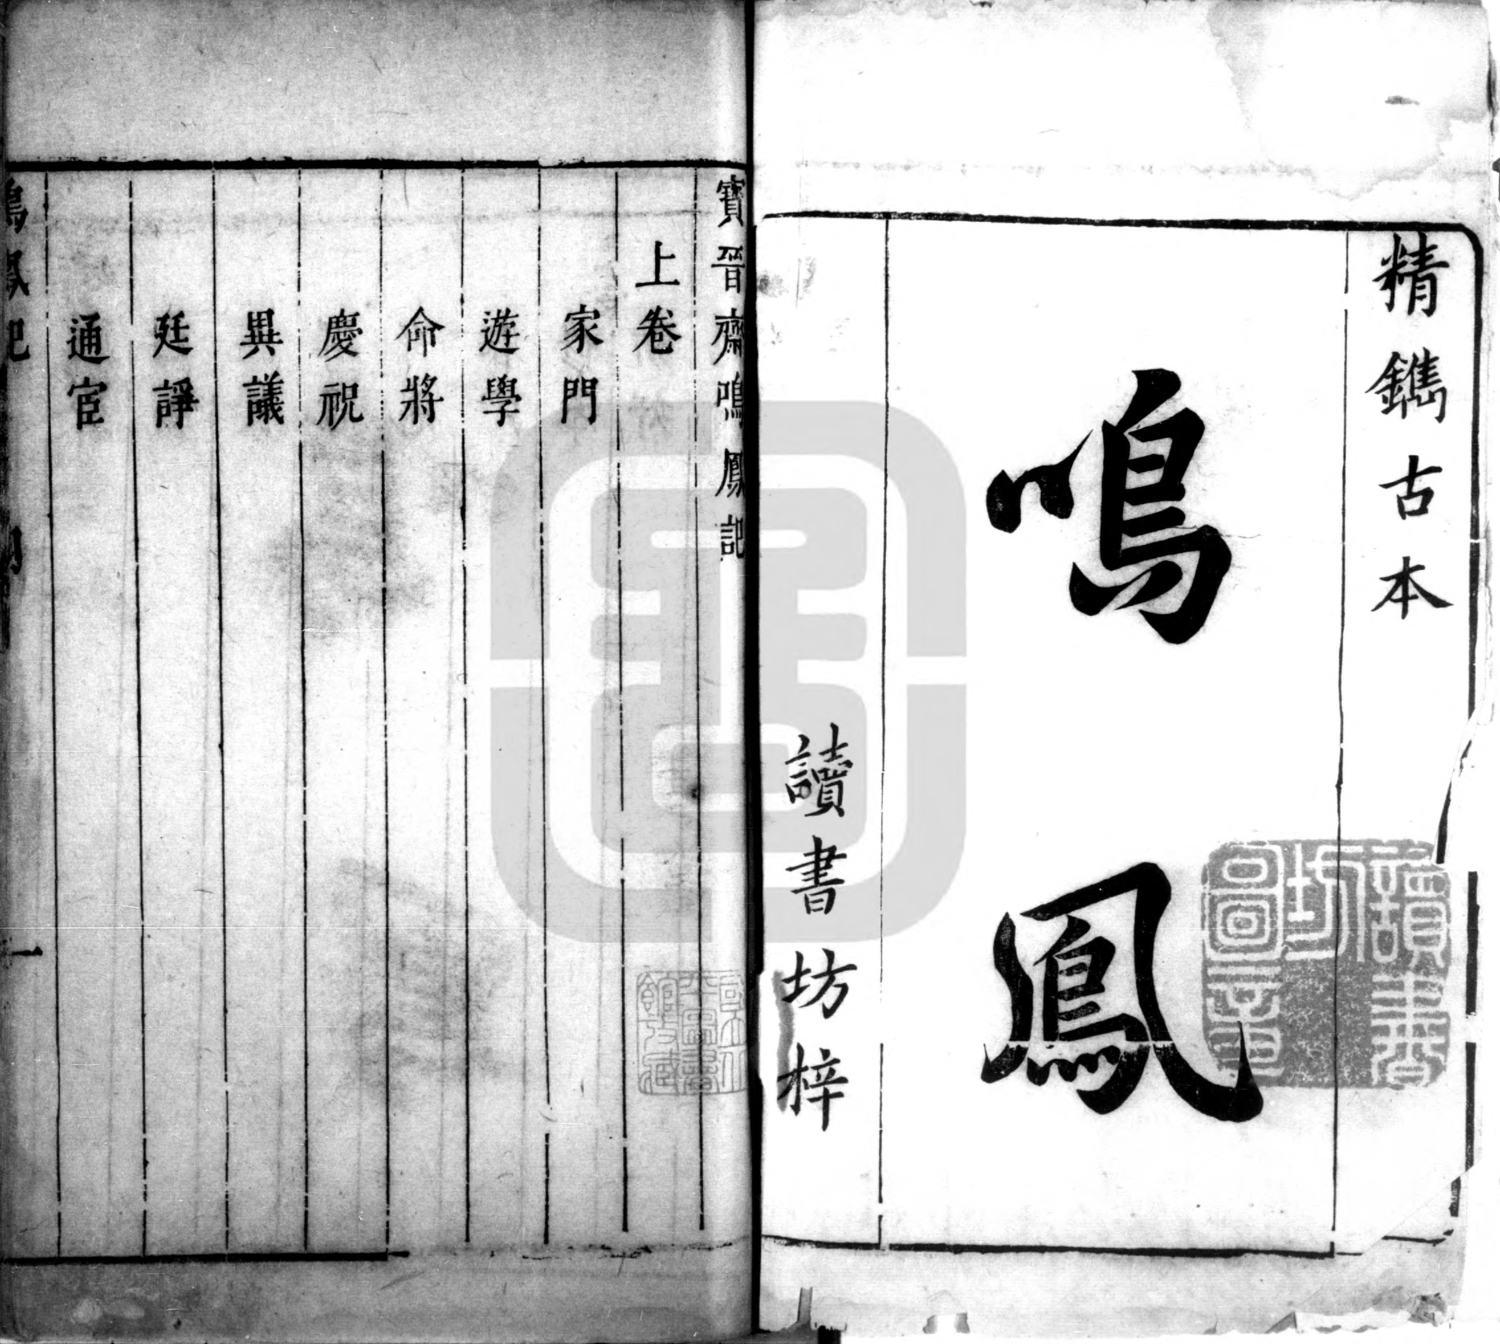 精鐫古本
鳴鳳
讀書坊梓
寶晉齋鳴鳳記
上卷
家門
遊學
命將
慶祝
異議
廷諍
通宦
一